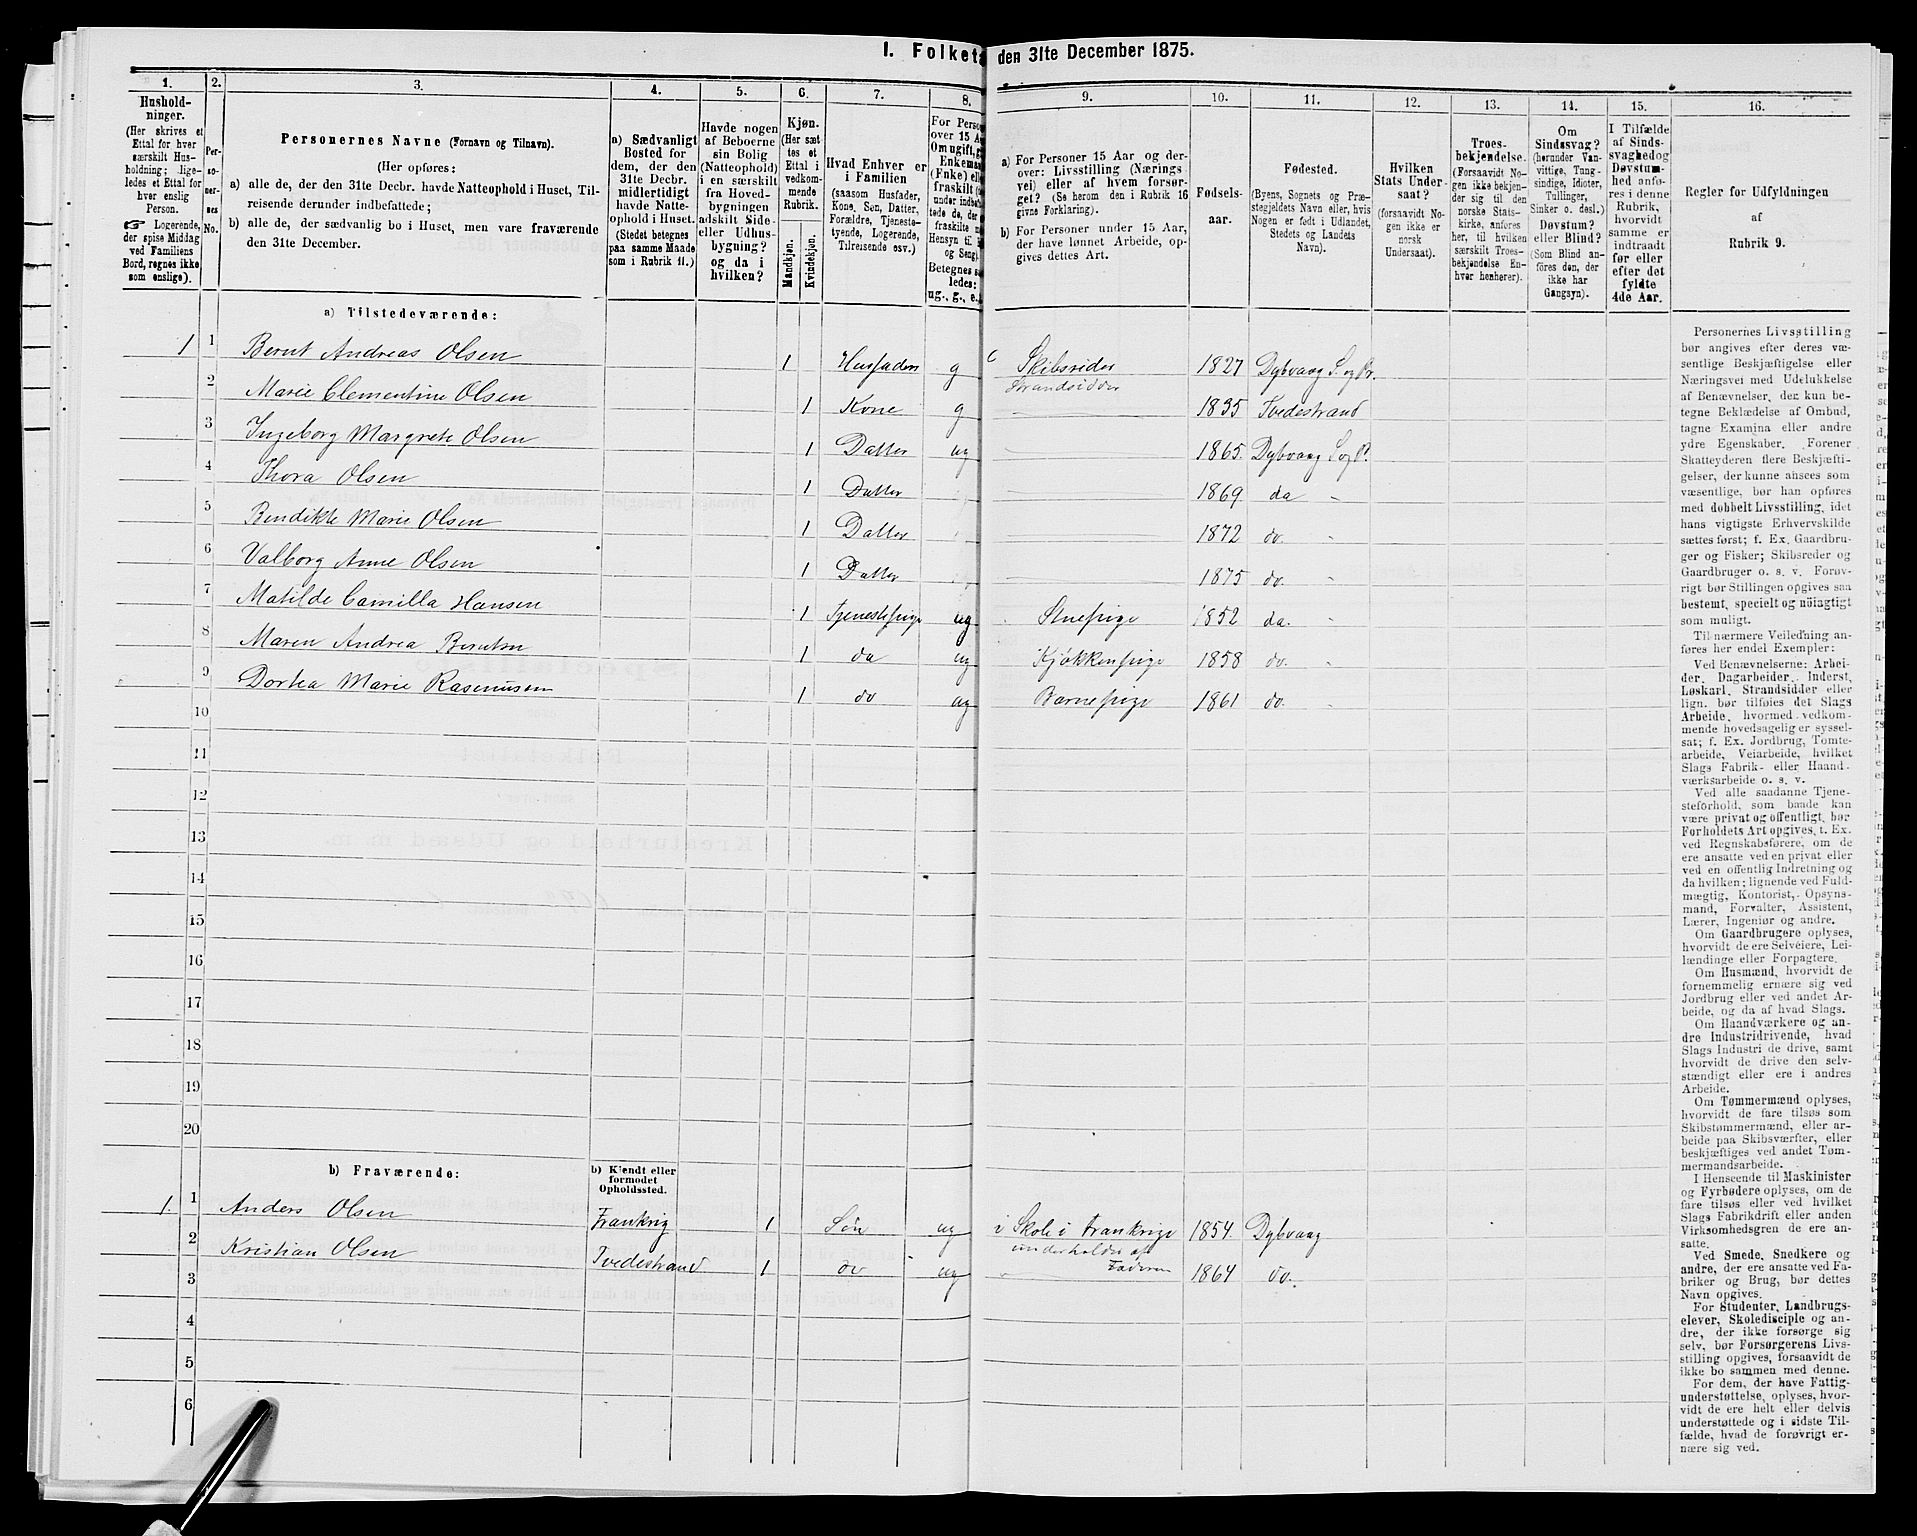 I. Folketæ den 31te December 1875.
1.
Hushold-
ninger.
(Her skrives et
Ettal for hver
særskilt Hus-
holdning; lige-
ledes et Ettal for
hver enslig
Person.
☞ Logerende,
der spise Middag
ved Familiens
Bord, regnes ikke
som enslige).
2.
Per-
so-
ner-
nes
No.
3.
Personernes Navne (Fornavn og Tilnavn).
(Her opføres:
a) alle de, der den 31te Decbr. havde Natteophold i Huset, Til-
reisende derunder indbefattede;
b) alle de, der sædvanlig bo i Huset, men vare fraværende
den 31te December.
4.
a) Sædvanligt
Bosted for
dem, der den
31te Decbr.
midlertidigt
havde Natte-
ophold i Huset.
(Stedet betegnes
paa samme Maade
som i Rubrik 11.)
5.
Havde nogen
af Beboerne
sin Bolig
(Natteophold)
i en særskilt
fra Hoved-
bygningen
adskilt Side-
eller Udhus-
bygning?
og da i
hvilken?
6.
Kjøn.
(Her sæt-
tes et
Ettal i
vedkom-
mende
Rubrik.
Mandkjøn.
Kvindekjøn.
7.
Hvad Enhver er
i Familien
(saasom Husfader,
Kone, Søn, Datter,
Forældre, Tjeneste-
tyende, Logerende,
Tilreisende osv.)
8.
For Perso
over 15 A
Om ugift, g
Enkema
(Enke) ell
fraskilt (
under indb
tede de, de
Hensyn ti
og Seng)
Betegnes s
ledes:
ug., g., e.,
9.
a) For Personer 15 Aar og der-
over: Livsstilling (Nærings-
vei) eller af hvem forsør-
get? (Se herom den i Rubrik 16
givne Forklaring).
b) For Personer under 15 Aar,
der have lønnet Arbeide, op-
gives dettes Art.
10.
Fødsels-
aar.
11.
Fødested.
(Byens, Sognets og Præ-
stegjeldets Navn eller, hvis
Nogen er født i Udlandet,
Stedets og Landets
Navn).
12.
Hvilken
Stats Under-
saat?
(forsaavidt No-
gen ikke er
norsk
Undersaat).
13.
Troes-
bekjendelse.
(Forsaavidt No-
gen ikke bekjen-
der sig til den
norske Stats-
kirke, anføres
her, til hvilken
særskilt Troes-
bekjendelse En-
hver henhører).
14.
Om
Sindssvag?
(herunder Van-
vittige, Tung-
sindige, Idioter,
Tullinger,
Sinker o. desl.)
Døvstum?
eller Blind?
(Som Blind an-
føres den, der
ikke har
Gangsyn).
15.
I Tilfælde
af Sinds-
svaghed og
Døvstum-
hed anfø-
res i denne
Rubrik,
hvorvidt
samme er
indtraadt
før eller
efter det
fyldte
4de Aar.
16.
Regler for Udfyldningen
af
Rubrik 9.
a) Tilstedeværende:
1 1 Bernt Andreas Olsen 1 Husfader g Skibsreder Strandsidder 1827 Dybvaag S. og Pr.
2 Marie Clementine Olsen 1 Kone g 1835 Tvedestrand
3 Ingeborg Margrete Olsen 1 Datter ug 1865. Dybvaag S og P.
4 Thora Olsen 1 Datter 1869 do
5 Bendikte Marie Olsen 1 Datter 1872 do.
6 Valborg Anne Olsen 1 Datter 1875 do.
7 Matilde Camilla Hansen 1 Tjenestepige ug Stuepige 1852 do.
8 Maren Andrea Berntsn 1 do ug Kjøkkenpige 1858 do.
9 Dortea Marie Rasmussen 1 do ug Barnepige 1861 do.
10
11
12
13
14
15
16
17
18
19
20
b) Fraværende:
b) Kjendt eller
formodet
Opholdssted.
1. 1 Anders Olsen Frankrig 1 Søn ug i Skole i Frankrige 1854. Dybvaag
underholdes af
2 Kristian Olsen Tvedestrand 1 do ug Faderen 1864 do.
3
4
5
6
Personernes Livsstilling
bør angives efter deres væ-
sentlige Beskjæftigelse eller
Næringsvei med Udelukkelse
af Benævnelser, der kun be-
tegne Beklædelse af Ombud,
tagne Examina eller andre
ydre Egenskaber. Forener
Skatteyderen flere Beskjæfti-
gelser, der kunne ansees som
væsentlige, bør han opføres
med dobbelt Livsstilling, idet
hans vigtigste Erhvervskilde
sættes først; f. Ex. Gaardbru-
ger og Fisker; Skibsreder og
Gaardbruger o. s. v. Forøv-
rigt bør Stillingen opgives saa
bestemt, specielt og nøiagtigt
som muligt.
Til nærmere Veiledning an-
føres her endel Exempler:
Ved Benævnelserne: Arbei-
der, Dagarbeider, Inderst,
Løskarl, Strandsidder eller
lign. bør tilføies det Slags
Arbeide, hvormed vedkom-
mende hovedsagelig er syssel-
sat; f. Ex. Jordbrug, Tomte-
arbeide, Veiarbeide, hvilket
Slags Fabrik- eller Haand-
værksarbeide o. s. v.
Ved alle saadanne Tjene-
steforhold, som baade kan
være privat og offentligt, bør
Forholdets Art opgives, t. Ex.
ved Regnskabsførere, om de
ere ansatte ved en privat eller
ved en offentlig Indretning og
da hvilken; lignende ved Fuld-
mægtig, Kontorist, Opsyns-
mand, Forvalter, Assistent,
Lærer, Ingeniør og andre.
Om Gaardbrugere oplyses,
hvorvidt de ere Selveiere, Lei-
lændinge eller Forpagtere.
Om Husmænd, hvorvidt de
fornemmelig ernære sig ved
Jordbrug eller ved andet Ar-
beide, og da af hvad Slags.
Om Haandværkere og an-
dre Industridrivende, hvad
Slags Industri de drive, samt
hvorvidt de drive den selv-
stændigt eller ere i andres
Arbeide.
Om Tømmermænd oplyses,
hvorvidt de fare tilsøs som
Skibstømmermænd, eller ar-
beide paa Skibsværfter, eller
beskjæftiges ved andet Tøm-
mermandsarbeide.
I Henseende til Maskinister
og Fyrbødere oplyses, om de
fare tilsøs eller ved hvilket
Slags Fabrikdrift eller anden
Virksomhedsgren de ere an-
satte.
Ved Smede, Snedkere og
andre, der ere ansatte ved Fa-
briker og Brug, bør dettes
Navn opgives.
For Studenter, Landbrugs-
elever, Skoledisciple og an-
dre, der ikke forsørge sig
selv, bør Forsørgerens Livs-
stilling opgives, forsaavidt de
ikke bo sammen med denne.
For dem, der have Fattig-
understøttelse, oplyses, hvor-
vidt de ere helt eller delvis
understøttede og i sidste Til-
fælde, hvad de forøvrigt er-
nære sig ved.